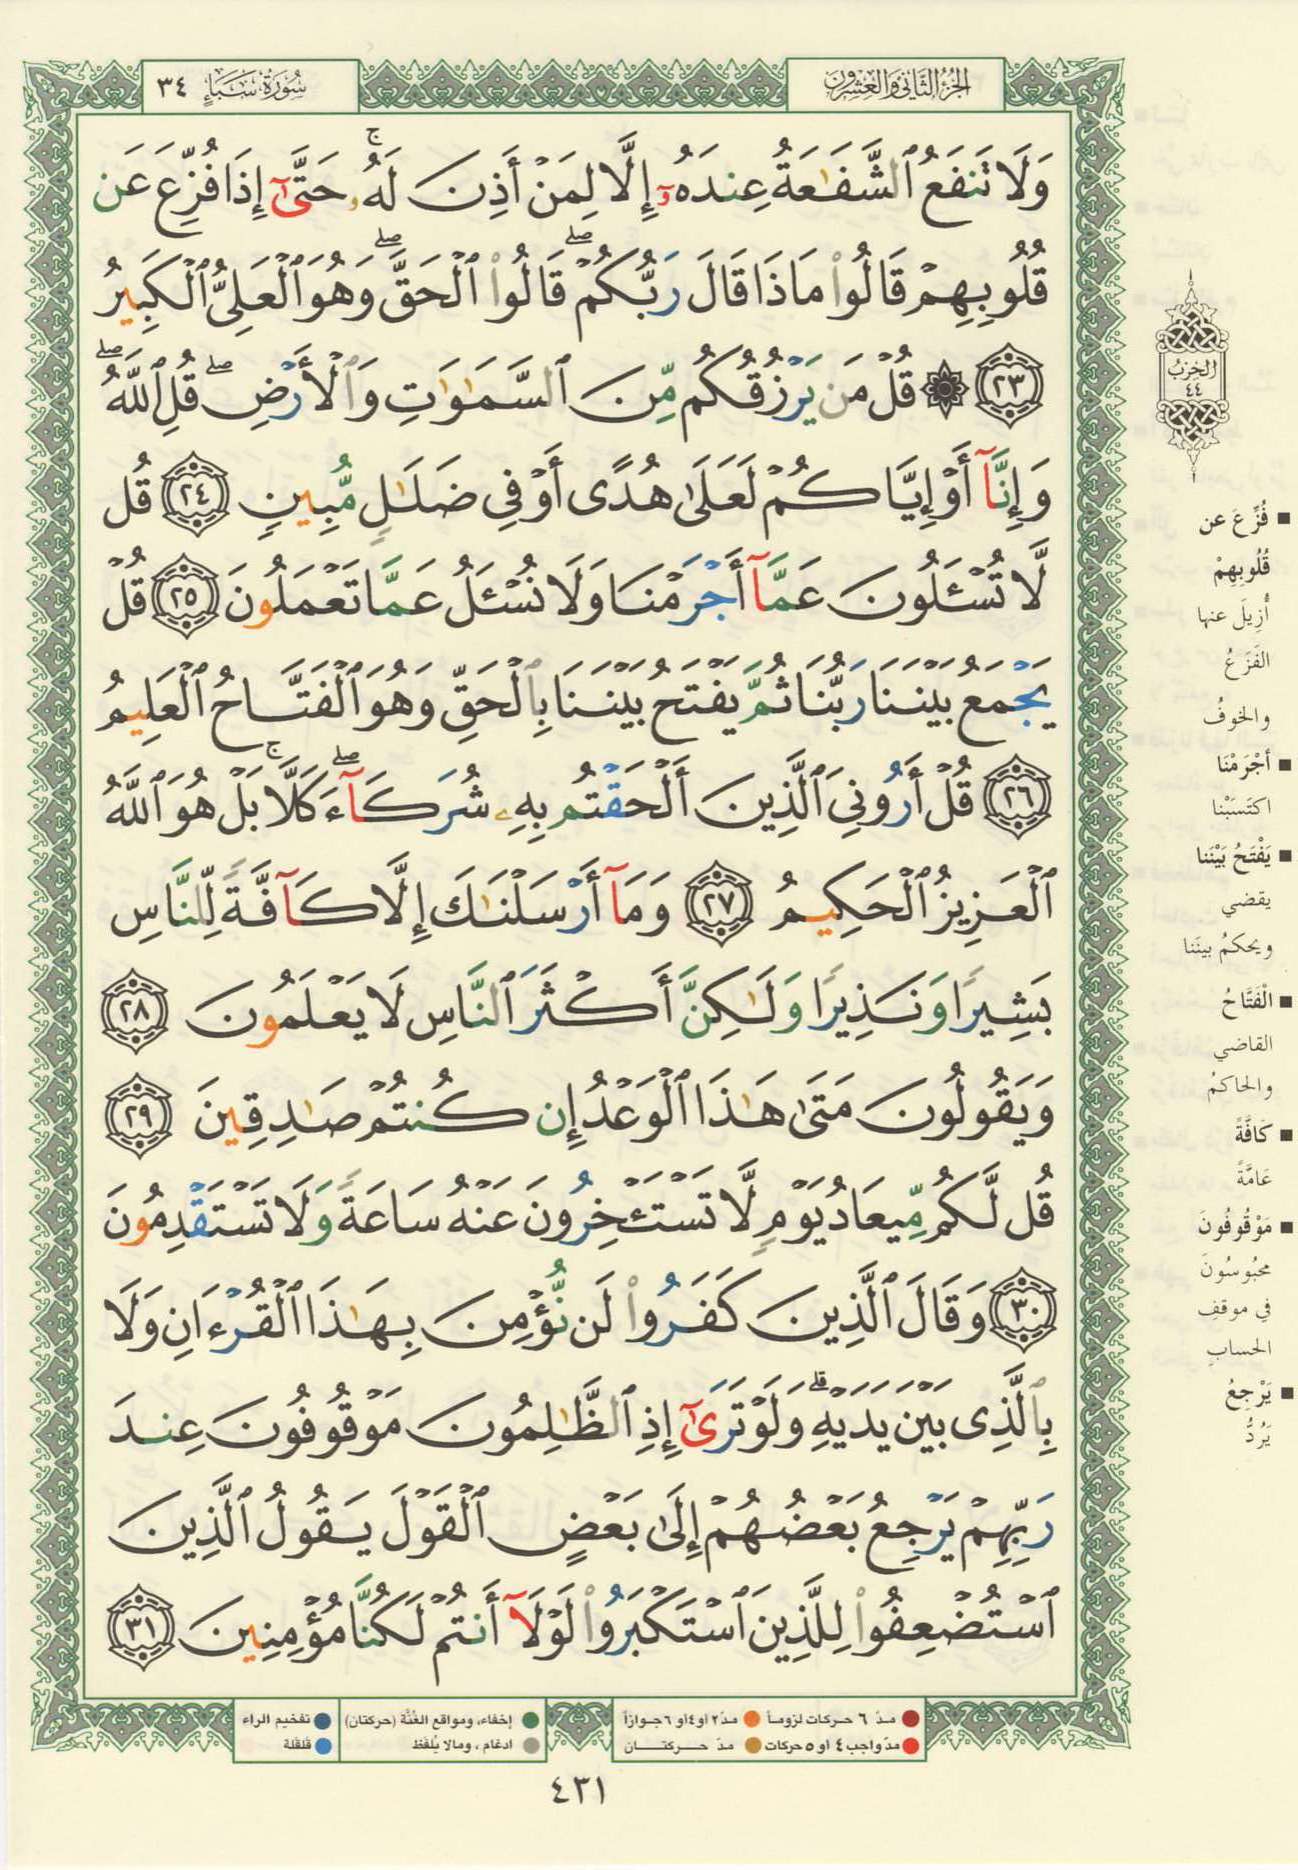 الجُزْءُ الثَّانِي وَالعِشْرُون
سُورَةُ سَبَإٍ ٣٤
وَلَا تَنفَعُ ٱلشَّفَٰعَةُ عِندَهُۥٓ إِلَّا لِمَنْ أَذِنَ لَهُۥۚ حَتَّىٰٓ إِذَا فُزِّعَ عَن
قُلُوبِهِمْ قَالُوا۟ مَاذَا قَالَ رَبُّكُمْۖ قَالُوا۟ ٱلْحَقَّۖ وَهُوَ ٱلْعَلِىُّ ٱلْكَبِيرُ
٢٣ ۞ قُلْ مَن يَرْزُقُكُم مِّنَ ٱلسَّمَٰوَٰتِ وَٱلْأَرْضِۖ قُلِ ٱللَّهُۖ
وَإِنَّآ أَوْ إِيَّاكُمْ لَعَلَىٰ هُدًى أَوْ فِى ضَلَٰلٍ مُّبِينٍ ٢٤ قُل
لَّا تُسْـَٔلُونَ عَمَّآ أَجْرَمْنَا وَلَا نُسْـَٔلُ عَمَّا تَعْمَلُونَ ٢٥ قُلْ
يَجْمَعُ بَيْنَنَا رَبُّنَا ثُمَّ يَفْتَحُ بَيْنَنَا بِٱلْحَقِّ وَهُوَ ٱلْفَتَّاحُ ٱلْعَلِيمُ
٢٦ قُلْ أَرُونِىَ ٱلَّذِينَ أَلْحَقْتُم بِهِۦ شُرَكَآءَۖ كَلَّاۚ بَلْ هُوَ ٱللَّهُ
ٱلْعَزِيزُ ٱلْحَكِيمُ ٢٧ وَمَآ أَرْسَلْنَٰكَ إِلَّا كَآفَّةً لِّلنَّاسِ
بَشِيرًا وَنَذِيرًا وَلَٰكِنَّ أَكْثَرَ ٱلنَّاسِ لَا يَعْلَمُونَ ٢٨
وَيَقُولُونَ مَتَىٰ هَٰذَا ٱلْوَعْدُ إِن كُنتُمْ صَٰدِقِينَ ٢٩
قُل لَّكُم مِّيعَادُ يَوْمٍ لَّا تَسْتَـْٔخِرُونَ عَنْهُ سَاعَةً وَلَا تَسْتَقْدِمُونَ
٣٠ وَقَالَ ٱلَّذِينَ كَفَرُوا۟ لَن نُّؤْمِنَ بِهَٰذَا ٱلْقُرْءَانِ وَلَا
بِٱلَّذِى بَيْنَ يَدَيْهِۗ وَلَوْ تَرَىٰٓ إِذِ ٱلظَّٰلِمُونَ مَوْقُوفُونَ عِندَ
رَبِّهِمْ يَرْجِعُ بَعْضُهُمْ إِلَىٰ بَعْضٍ ٱلْقَوْلَ يَقُولُ ٱلَّذِينَ
ٱسْتُضْعِفُوا۟ لِلَّذِينَ ٱسْتَكْبَرُوا۟ لَوْلَآ أَنتُمْ لَكُنَّا مُؤْمِنِينَ ٣١
الحِزْبُ
٤٤
■ فُزِّعَ عن
قُلُوبِهِمْ
أُزِيلَ عنها
الفَزَعُ
والخوفُ
■ أجْرَمْنَا
اكتَسَبْنا
■ يَفْتَحُ بَيْنَنا
يقضي
ويحكمُ بينَنا
■ الْفَتَّاحُ
القاضي
والحاكمُ
■ كَافَّةً
عَامَّةً
■ مَوْقُوفُونَ
محبُوسُونَ
في موقفِ
الحسابِ
■ يَرْجِعُ
يَرُدُّ
مدّ ٦ حركات لزوماً
مدّ ٢ او ٤ او ٦ جوازاً
إخفاء، ومواقع الغُنَّة (حركتان)
تفخيم الراء
مدّ واجب ٤ او ٥ حركات
مدّ حركتان
ادغام ، ومالا يُلفَظ
قلقلة
٤٣١